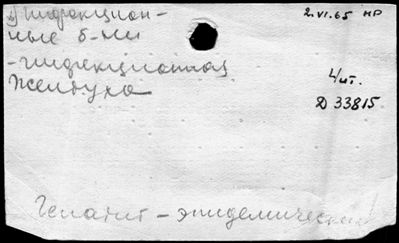 1) Инфекцион-
ные б-ни
2.VI.65 НР
-инфекционная
желтуха
4/ит.
Д 33815
Гепатит - эпидемический